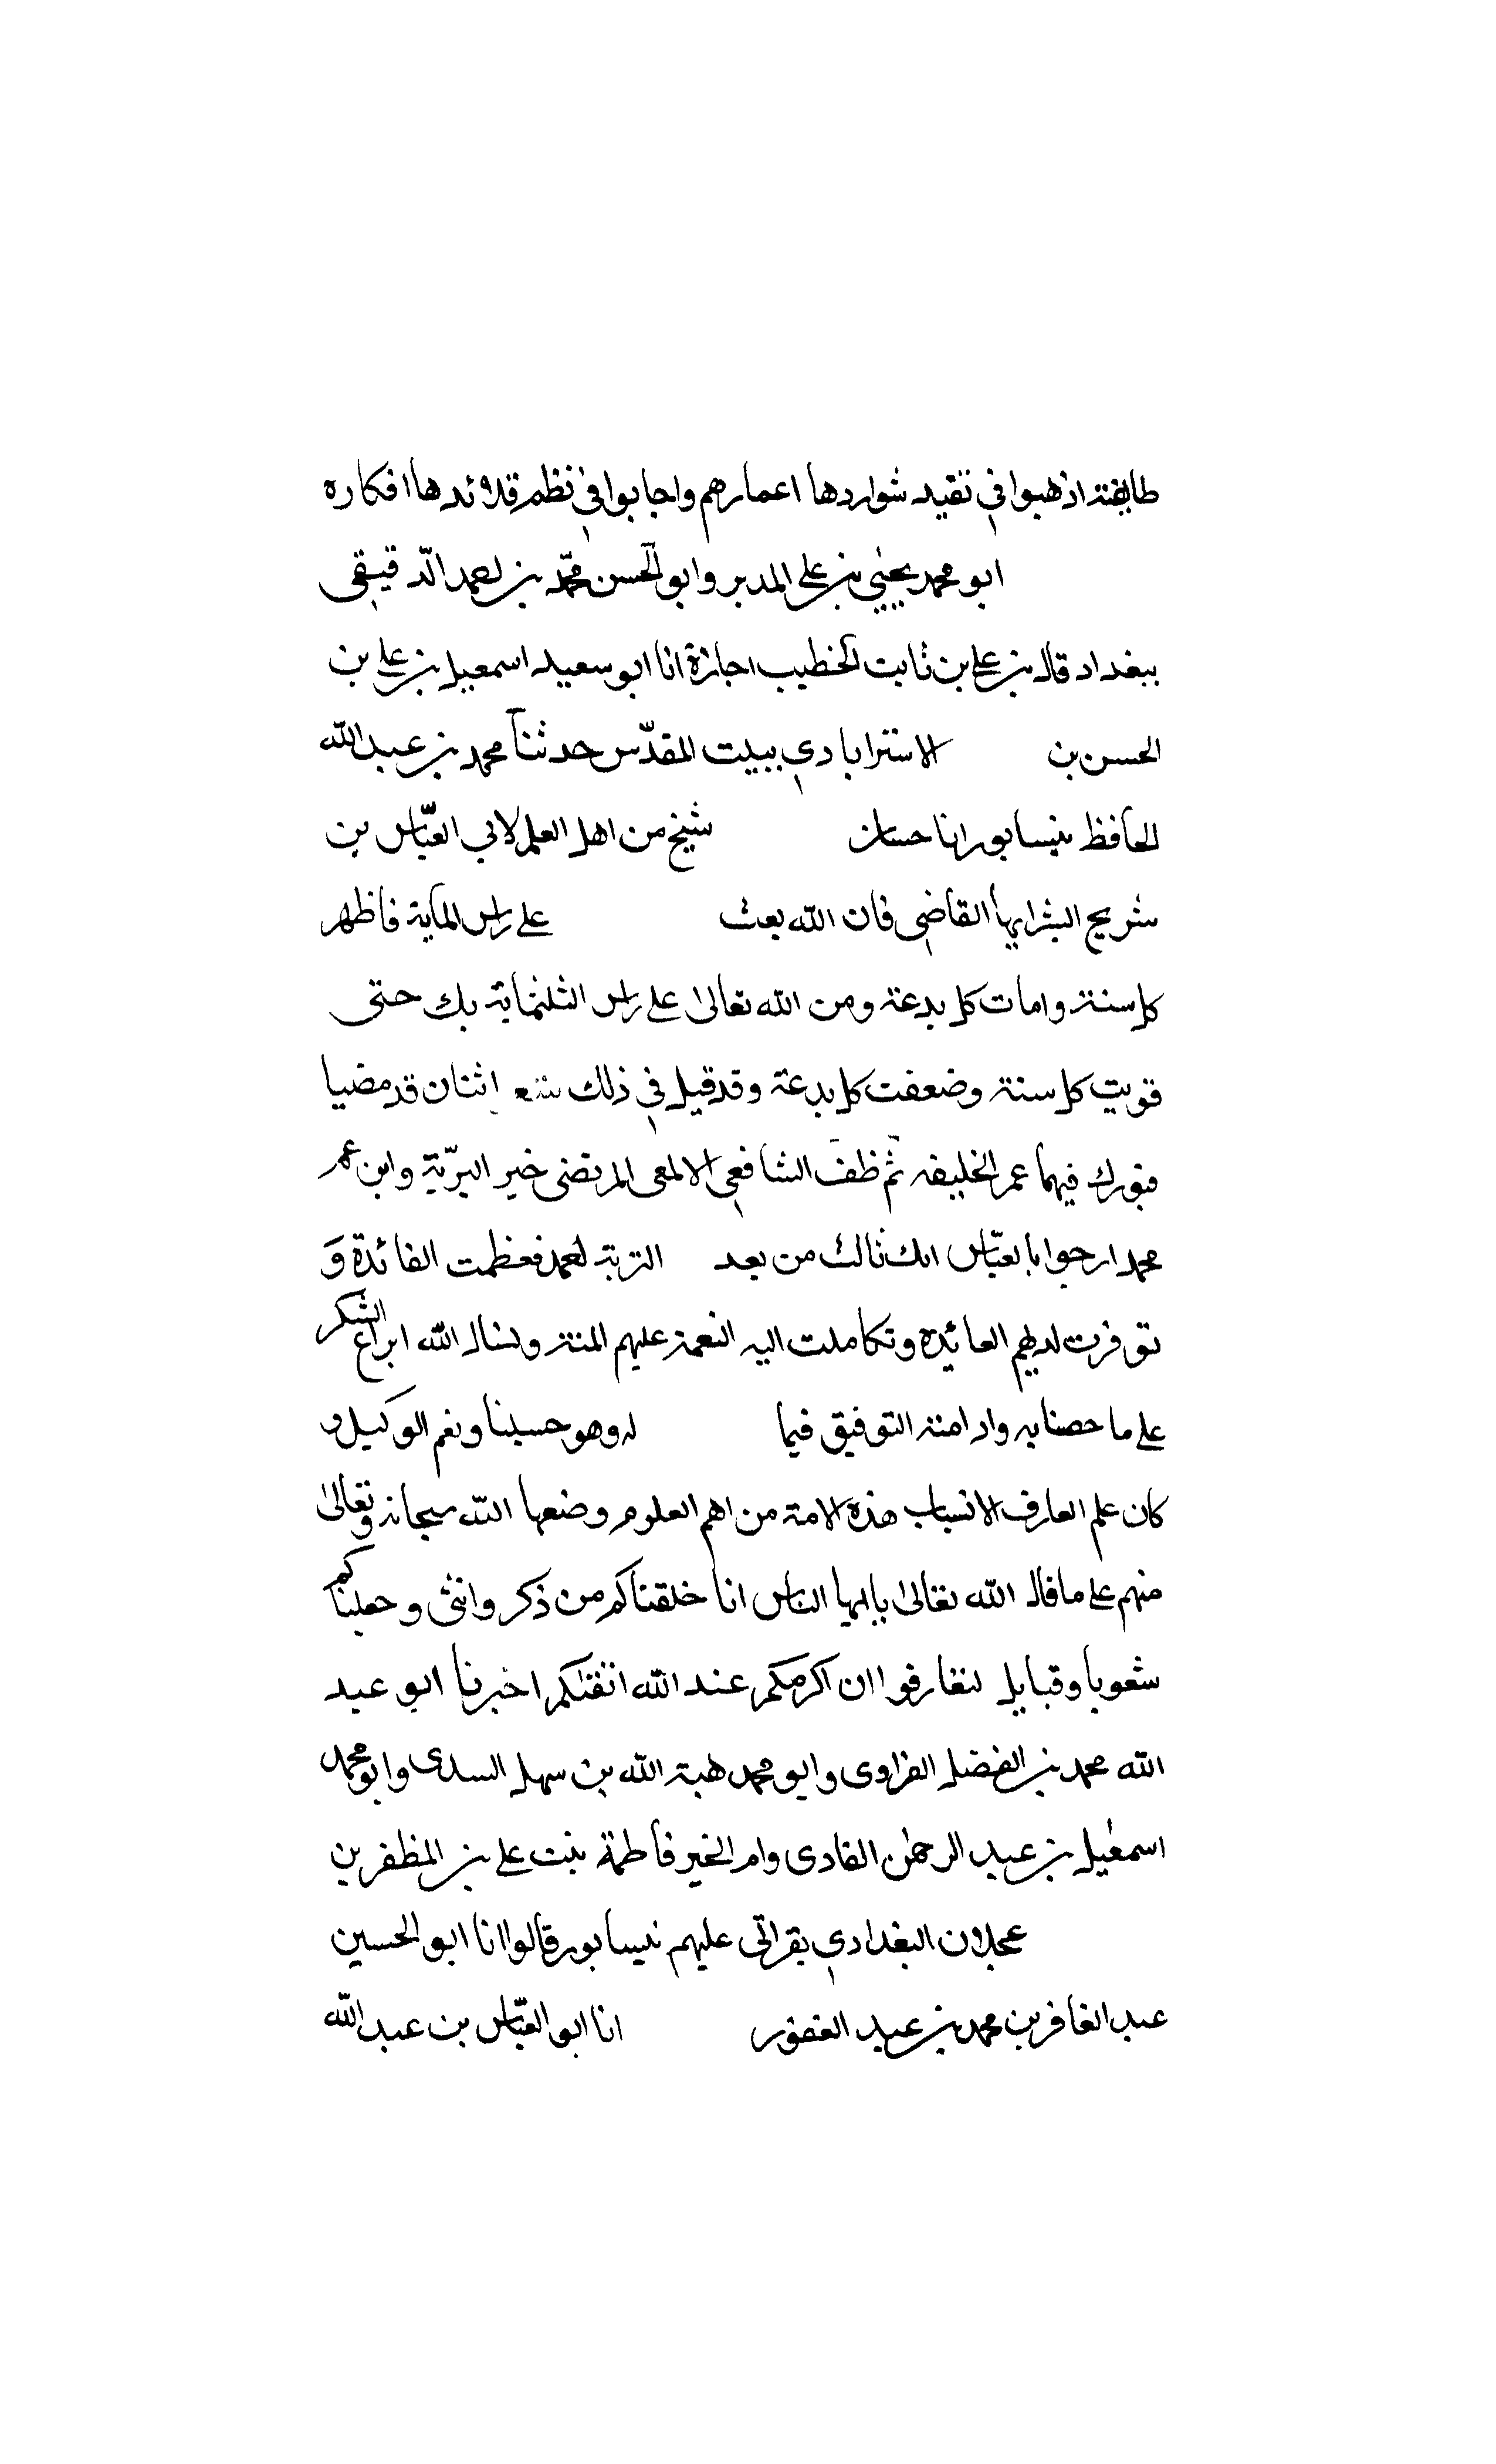 طايفة اذهبوا في تقيد شواردها اعمارهم واجابوا في نظم قلائدها افكاره
ابو محمد يحيي بن علي المدبر وابو الحسن محمّد بن لحمد الدّقيقى
ببغداد قال بن علي بن ثابت الخطيب اجازة انا ابو سعيد اسمعيل بن علي بن
الحسن بن الاسترابادي ببيت المقدّس حدثنا محمد بن عبد الله
الحافظ بنيسابور انا حسان شيخ من اهل العلم لابي العبّاس بن
شريح ابشر ايها القاضى فان الله بعث على راس الماية فاظهر
كل سنة وامات كل بدعة ومن الله تعالى على راس الثلثماية بك حتى
قويت كل سنة وضعفت كل بدعة وقد قيل في ذلك اثنان قد مضيا
فبورك فيهما عمر الخليفه ثم الشافعي الالمعى المرتضى خير البريّة وابن عم
محمد ارجوا ابا لعبّاس انك ثالث من بعد التربة لحمد فعظمت الفائدة وَ
توفرت لديهم العائدة وتكاملت اليه النعمة عليهم المنة ونسال الله ابراع الشكر
على ما حصنا به وادامته التوفيق فيما له وهو حسبنا ونعم الوكيل و
كان علم العارف الانساب هذه الامة من اهم العلوم وضعها الله سبحانه وتعالى
منهم على ما قال الله تعالى ياايها الناس انا خلقناكم من ذكر وانثى وجعلناكم
شعوبا وقبايل لتعارفوا ان اكرمكم عند الله اتقٰكم اخبرنا ابو عبد
الله محمد بن الفضل الفزاوى وابو محمد هبة الله بن سهل السدى وابو محمد
اسمعيل بن عبد الرحمن القادى وام الخير فاطمة بنت على بن المظفر بن
عجلان البغدادي بقراتى عليهم نيسابور قالوا انا ابو الحسين
عبد الغافر بن محمد بن عبد الغفور انا ابو العبّاس بن عبد الله